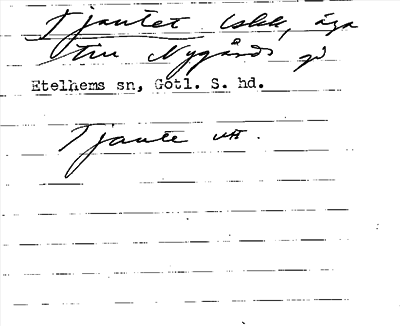 Tjautet Åkk, äga
till Nygårds gd
Etelhems sn, Gotl. S. hd.
Tjaute utt.